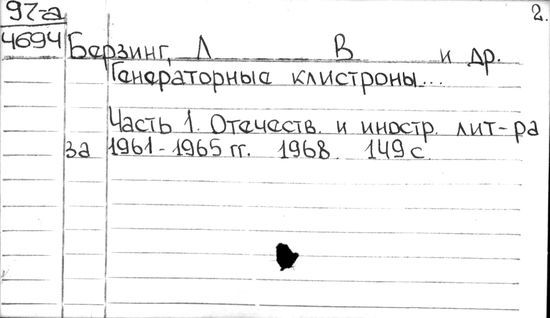 97-а 2.
4694 Берзинг, Л В и др.
Генераторные клистроны...
Часть 1. Отечеств. и иностр. лит-ра
за 1961-1965 гг. 1968 149 с.